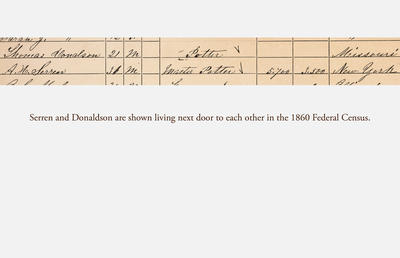 Thomas Donalson 21 M Potter Missouri
A. H. Serren M Master Potter 5,700 3,500 New York
Serren and Donaldson are shown living next door to each other in the 1860 Federal Census.